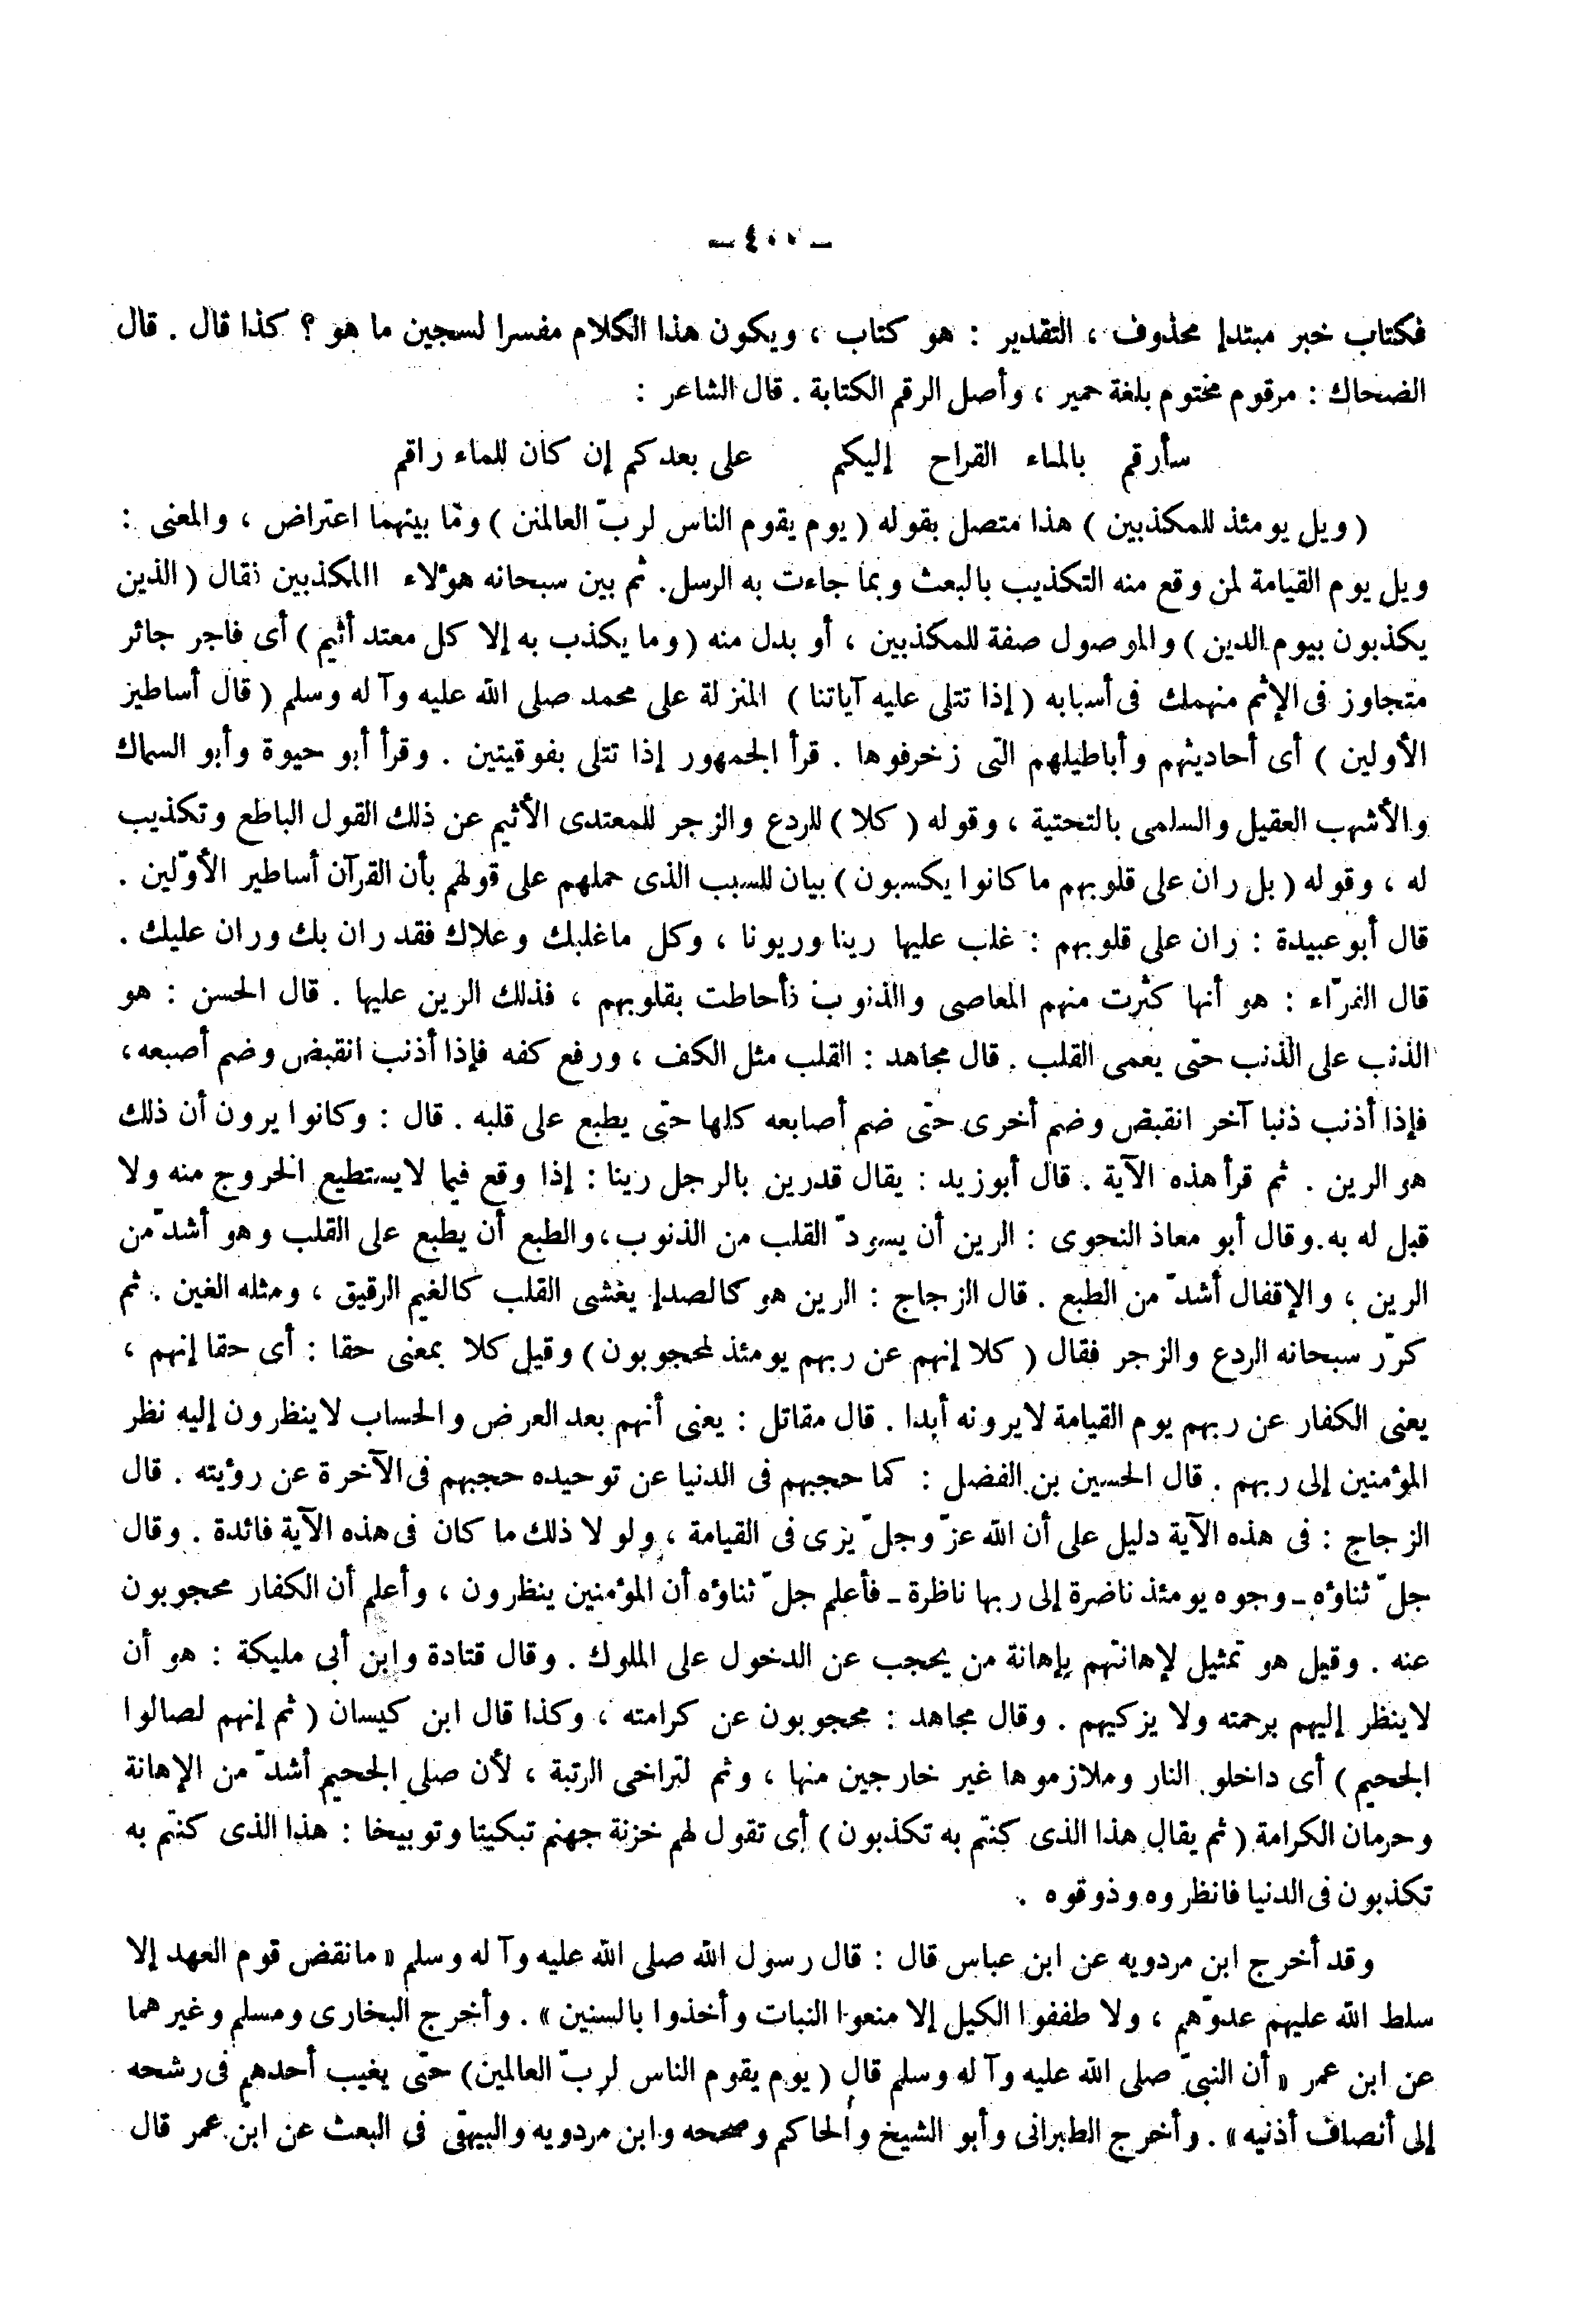 ـ ٤٠٠ ـ
فكتاب خبر مبتدإ محذوف ، التقدير : هو كتاب ، ويكون هذا الكلام مفسرا لسجين ما هو ؟ كذا قال . قال
الضحاك : مرقوم مختوم بلغة حمير ، وأصل الرقم الكتابة . قال الشاعر :
سأرقم بالماء القراح إليكم على بعدكم إن كان للماء راقم
( ويل يومئذ للمكذبين ) هذا متصل بقوله ( يوم يقوم الناس لربّ العالمين ) وما بينهما اعتراض ، والمعنى :
ويل يوم القيامة لمن وقع منه التكذيب بالبعث وبما جاءت به الرسل. ثم بين سبحانه هؤلاء المكذبين فقال ( الذين
يكذبون بيوم الدين ) والموصول صفة للمكذبين ، أو بدل منه ( وما يكذب به إلا كل معتد أثيم ) أى فاجر جائر
متجاوز فى الإثم منهمك فى أسبابه ( إذا تتلى عليه آياتنا ) المنزلة على محمد صلى الله عليه وآله وسلم ( قال أساطير
الأولين ) أى أحاديثهم وأباطيلهم التى زخرفوها . قرأ الجمهور إذا تتلى بفوقيتين . وقرأ أبو حيوة وأبو السماك
والأشهب العقيلى والسلمى بالتحتية ، وقوله ( كلا ) للردع والزجر للمعتدى الأثيم عن ذلك القول الباطع وتكذيب
له ، وقوله ( بل ران على قلوبهم ما كانوا يكسبون ) بيان للسبب الذى حملهم على قولهم بأن القرآن أساطير الأوّلين .
قال أبو عبيدة : ران على قلوبهم : غلب عليها رينا وريونا ، وكل ماغلبك وعلاك فقد ران بك وران عليك .
قال الفرّاء : هو أنها كثرت منهم المعاصى والذنوب فأحاطت بقلوبهم ، فذلك الرين عليها . قال الحسن : هو
الذنب على الذنب حتى يعمى القلب . قال مجاهد : القلب مثل الكف ، ورفع كفه فإذا أذنب انقبض وضم أصبعه،
فإذا أذنب ذنبا آخر انقبض وضم أخرى حتى ضم أصابعه كلها حتى يطبع على قلبه . قال : وكانوا يرون أن ذلك
هو الرين . ثم قرأ هذه الآية . قال أبوزيد : يقال قدرين بالرجل رينا : إذا وقع فيما لايستطيع الخروج منه ولا
قبل له به.وقال أبو معاذ النحوى : الرين أن يسودّ القلب من الذنوب،والطبع أن يطبع على القلب وهو أشدّ من
الرين ، والإقفال أشدّ من الطبع . قال الزجاج : الرين هو كالصدإ يغشى القلب كالغيم الرقيق ، ومثله الغين . ثم
كرّر سبحانه الردع والزجر فقال ( كلا إنهم عن ربهم يومئذ لمحجوبون ) وقيل كلا بمعنى حقا : أى حقا إنهم ،
يعنى الكفار عن ربهم يوم القيامة لايرونه أبدا . قال مقاتل : يعنى أنهم بعد العرض والحساب لاينظرون إليه نظر
المؤمنين إلى ربهم . قال الحسين بن الفضل : كما حجبهم فى الدنيا عن توحيده حجبهم فى الآخرة عن رؤيته . قال
الزجاج : فى هذه الآية دليل على أن الله عزّ وجلّ يرى فى القيامة ، ولولا ذلك ما كان فى هذه الآية فائدة . وقال
جلّ ثناؤه ـ وجوه يومئذ ناضرة إلى ربها ناظرة ـ فأعلم جلّ ثناؤه أن المؤمنين ينظرون ، وأعلم أن الكفار محجوبون
عنه . وقيل هو تمثيل لإهانتهم بإهانة من يحجب عن الدخول على الملوك . وقال قتادة وابن أبى مليكة : هو أن
لاينظر إليهم برحمته ولا يزكيهم . وقال مجاهد : محجوبون عن كرامته ، وكذا قال ابن كيسان ( ثم إنهم لصالوا
الجحيم ) أى داخلو النار وملازموها غير خارجين منها ، وثم لتراخى الرتبة ، لأن صلى الجحيم أشدّ من الإهانة
وحرمان الكرامة ( ثم يقال هذا الذى كنتم به تكذبون ) أى تقول لهم خزنة جهنم تبكيتا وتوبيخا : هذا الذى كنتم به
تكذبون فى الدنيا فانظروه وذوقوه .
وقد أخرج ابن مردويه عن ابن عباس قال : قال رسول الله صلى الله عليه وآله وسلم « مانقض قوم العهد إلا
سلط الله عليهم عدوّهم ، ولا طففوا الكيل إلا منعوا النبات وأخذوا بالسنين » . وأخرج البخارى ومسلم وغيرهما
عن ابن عمر « أن النبىّ صلى الله عليه وآله وسلم قال ( يوم يقوم الناس لربّ العالمين) حتى يغيب أحدهم فى رشحه
إلى أنصاف أذنيه » . وأخرج الطبرانى وأبو الشيخ والحاكم وصححه وابن مردويه والبيهقى فى البعث عن ابن عمر قال